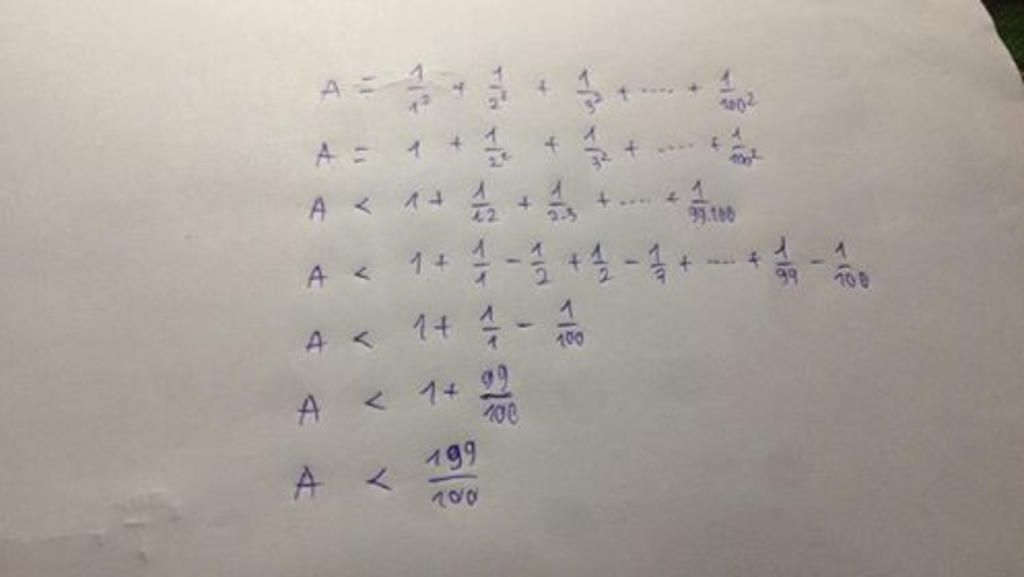 A = 1/1² + 1/2² + 1/3² + .... + 1/100²
A = 1 + 1/2² + 1/3² + .... + 1/100²
A < 1 + 1/1.2 + 1/2.3 + .... + 1/99.100
A < 1 + 1/1 - 1/2 + 1/2 - 1/7 + .... + 1/99 - 1/100
A < 1 + 1/1 - 1/100
A < 1 + 99/100
A < 199/100